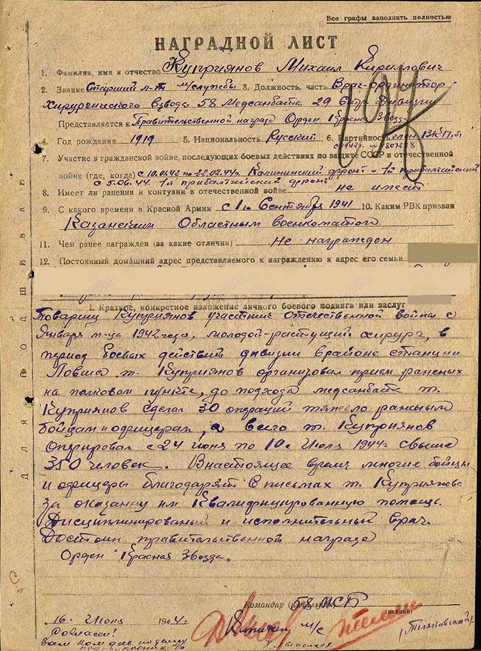 Все графы заполнять полностью
НАГРАДНОЙ ЛИСТ
1. Фамилия, имя и отчество Куприянов Михаил Кириллович
2. Звание Старший л-т м/службы 3. Должность, часть Врач-ординатор
хирургического взвода 58 Медсанбата 29 Стр. Дивизии
Представляется к Правительственной награде Орден Кр. Звезда
4. Год рождения 1919 5. Национальность Русский 6. Партийность
7. Участие в гражданской войне, последующих боевых действиях по защите СССР и отечественной
войне (где, когда) с 10.04.42 по 22.02.44 Калининский фронт и 1й прибалтийский
с 5.06.44. 1й прибалтийский фронт
8. Имеет ли ранения и контузии в отечественной войне не имеет
9. С какого времени в Красной Армии с 1го Сентября 1941 10. Каким РВК призван
Казанским Областным военкоматом
11. Чем ранее награжден (за какие отличия) Не награжден
12. Постоянный домашний адрес представляемого к награждению и адрес его семьи
I. Краткое, конкретное изложение личного боевого подвига или заслуг
Товарищ Куприянов участник Отечественной войны с
Января м-ца 1942 года, молодой-растущий хирург, в
период боевых действий дивизии в районе станции
Ловша т. Куприянов организовал прием раненых
на полковом пункте, до подхода медсанбата т.
Куприянов сделал 30 операций тяжело раненым
бойцам и офицерам, а всего т. Куприянов
оперировал с 24 июня по 10е Июля 1944 г свыше
350 человек. В настоящее время многие бойцы
и офицеры благодарят в письмах т. Куприянова
за оказанную им квалифицированную помощь.
Дисциплинированный и исполнительный врач.
Достоин правительственной награде
Орден Красная Звезда.
Командир 58 МСБ
16 Июля 1944 г. Капитан м/с